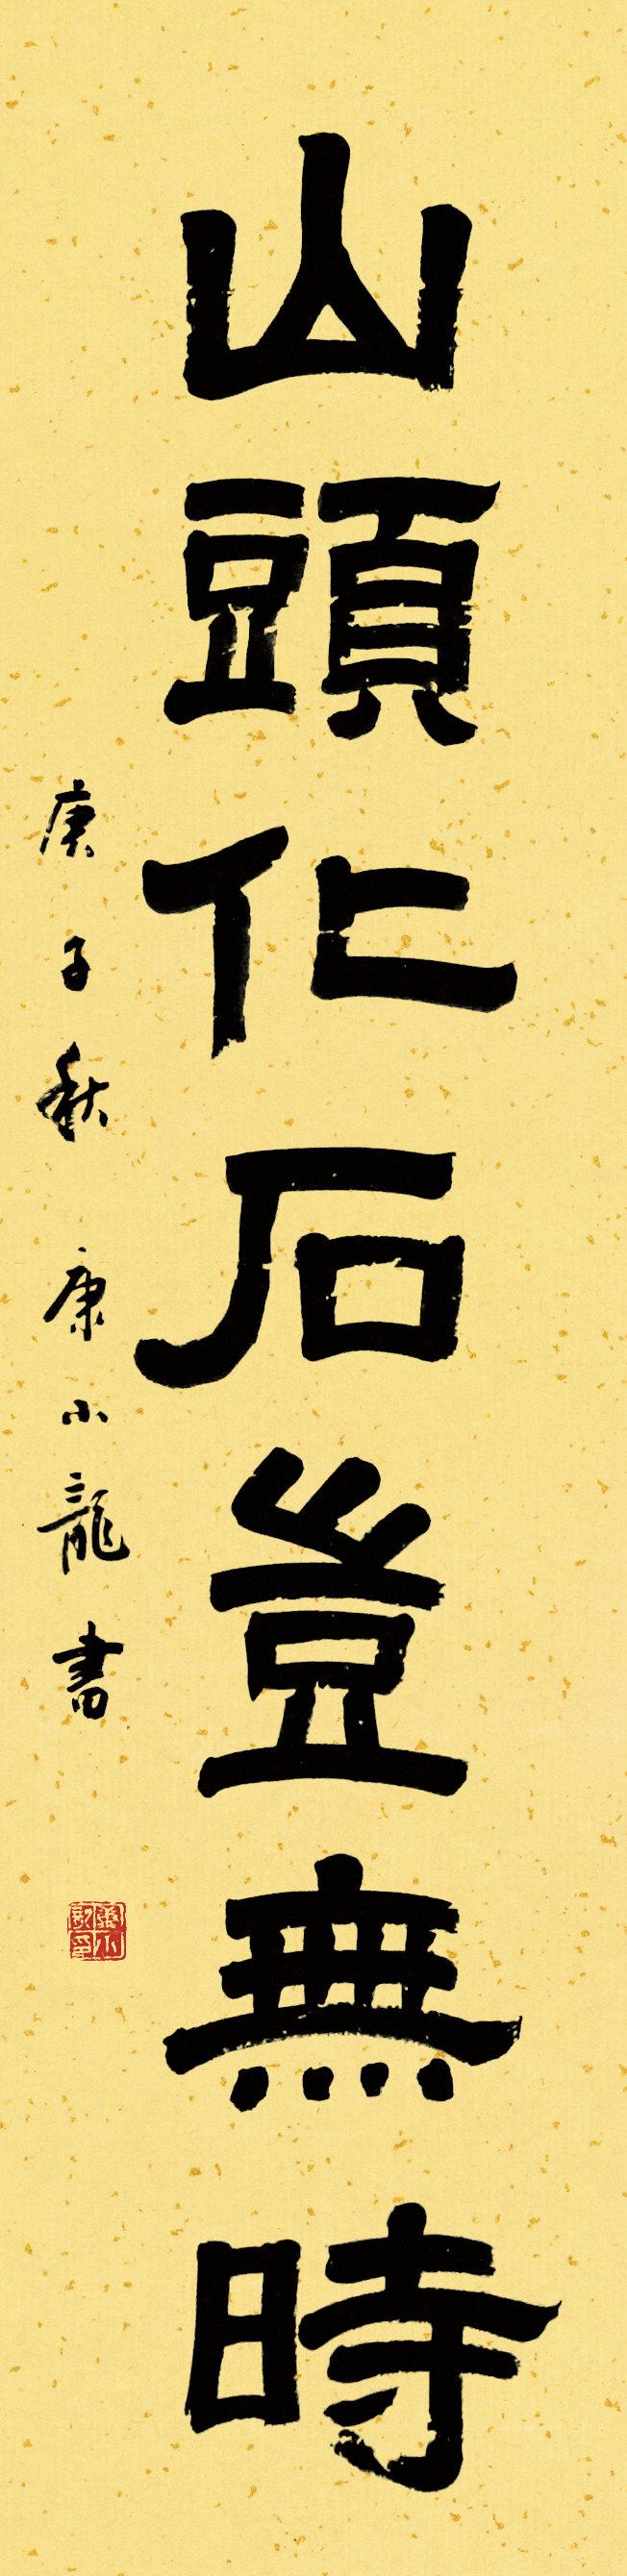 山頭化石豈無時
庚子秋 康小龍書